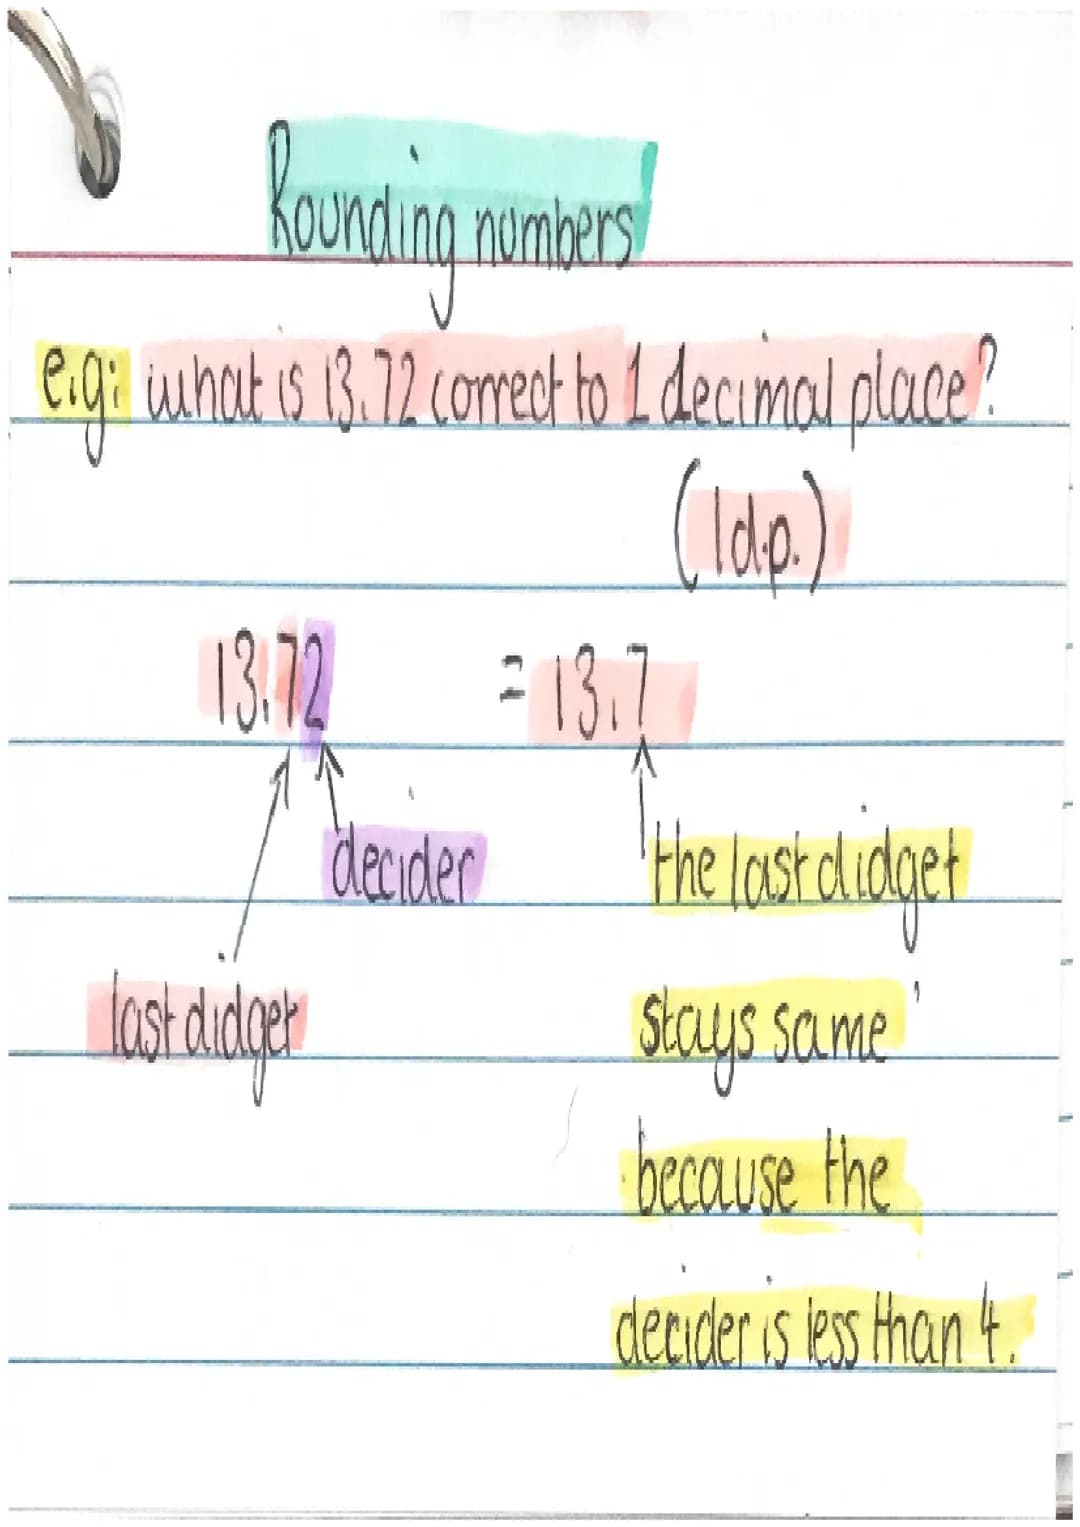 Rounding numbers
e.g: what is 13.72 correct to 1 decimal place?
(1d.p.)
13.72 = 13.7
decider
the last didget
last didget
stays same
because the
decider is less than 4.